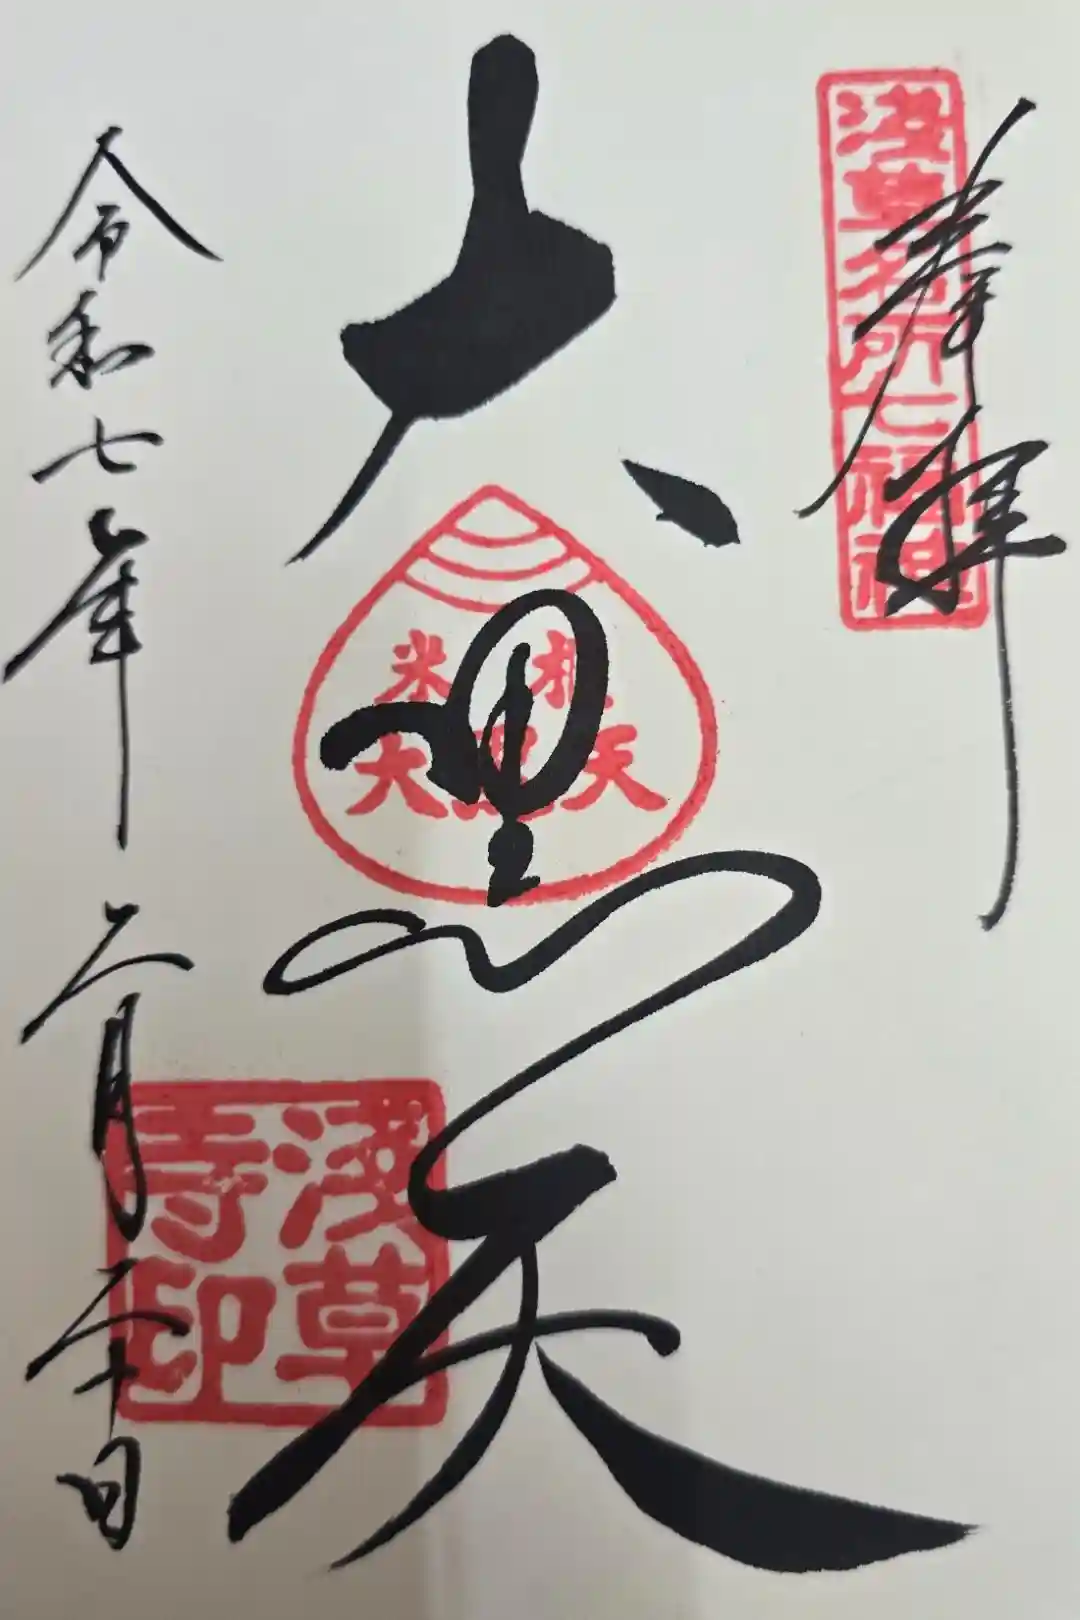 奉拝
浅草名所七福神
大黒天
米 櫃
大黒天
浅草
寺印
令和七年二月二十日